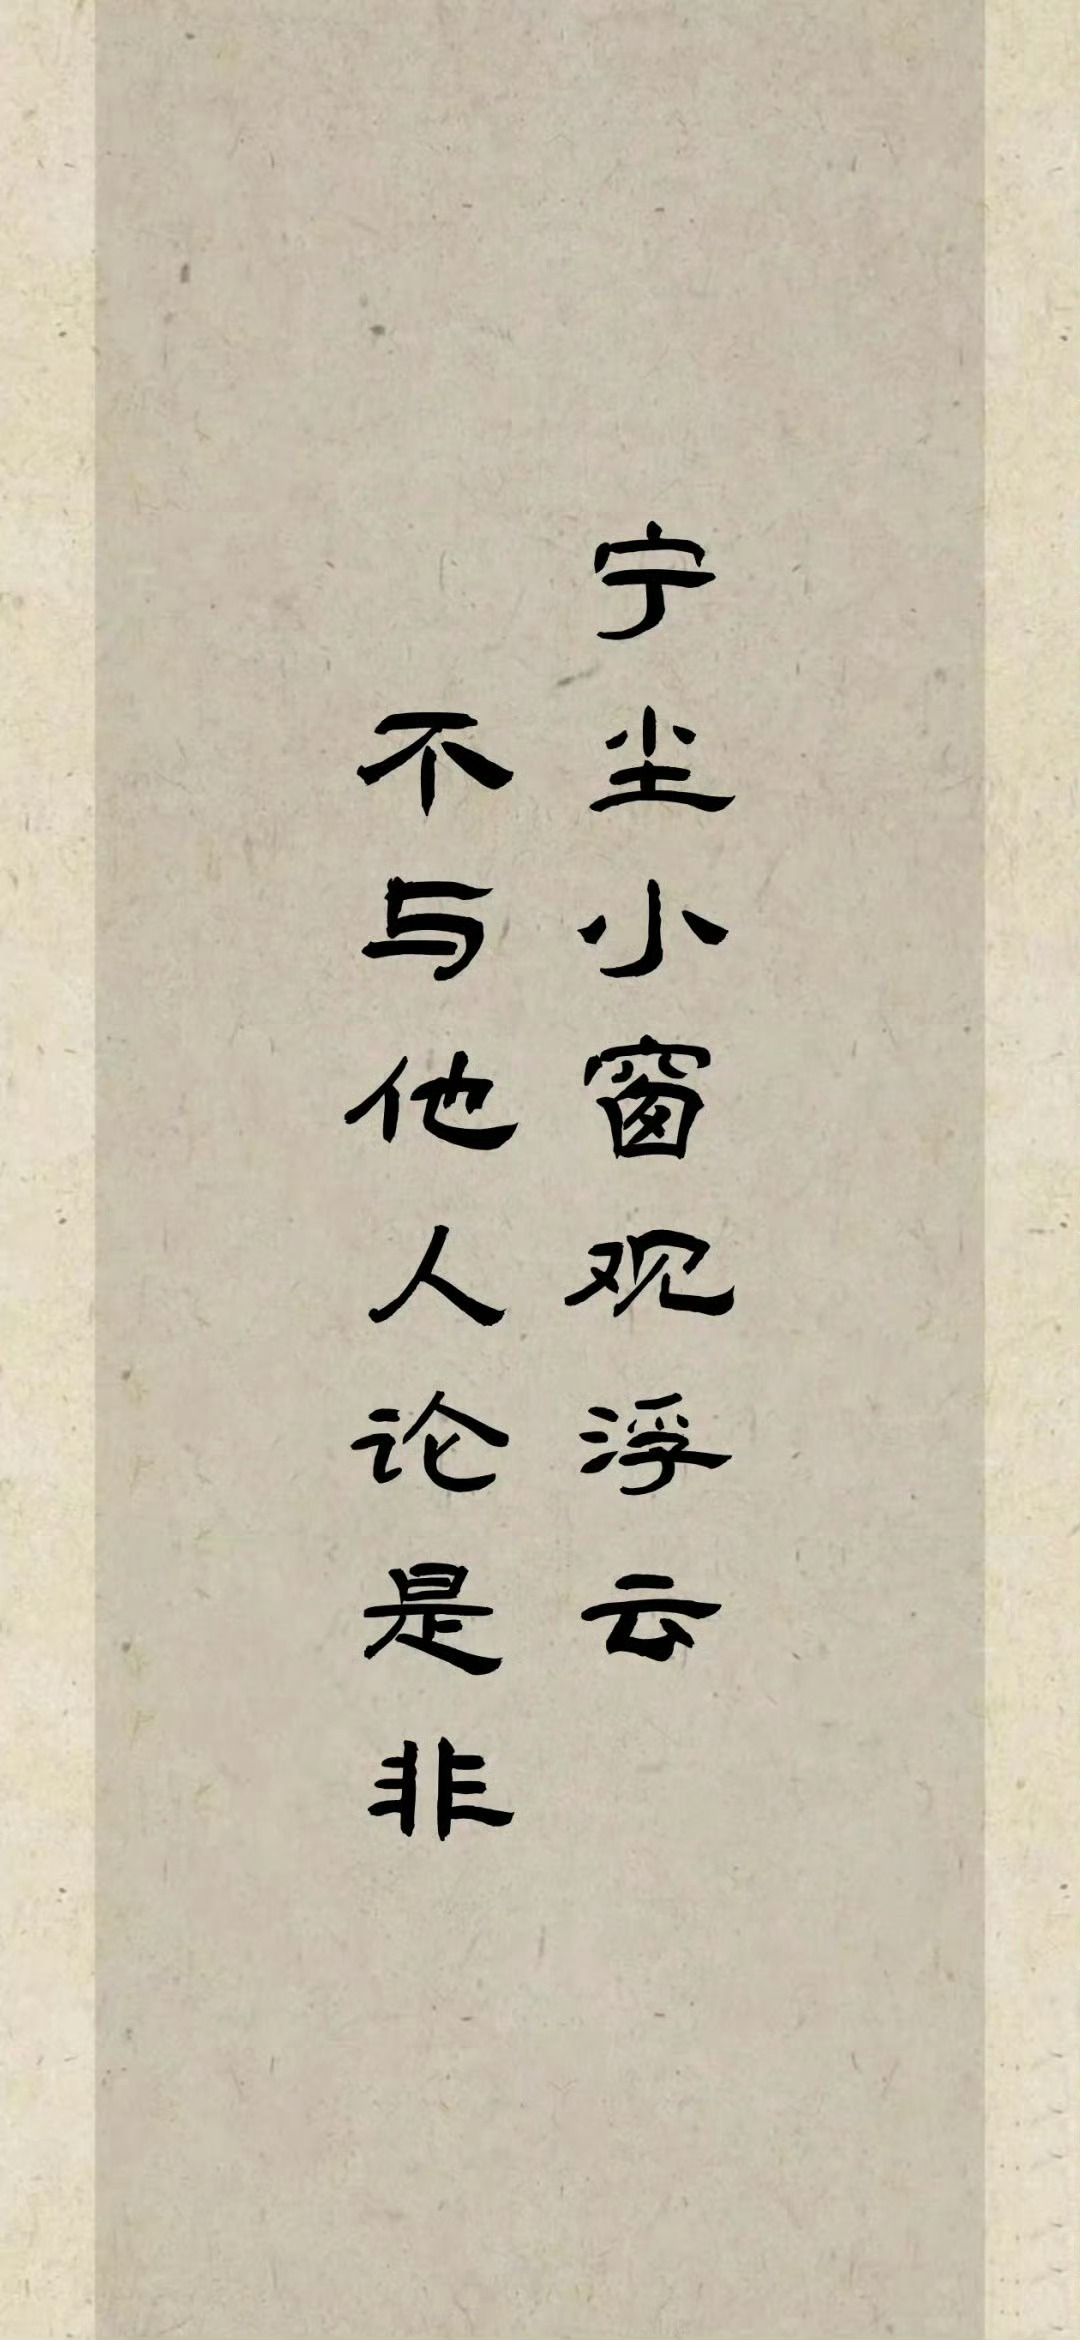 宁尘小窗观浮云
不与他人论是非